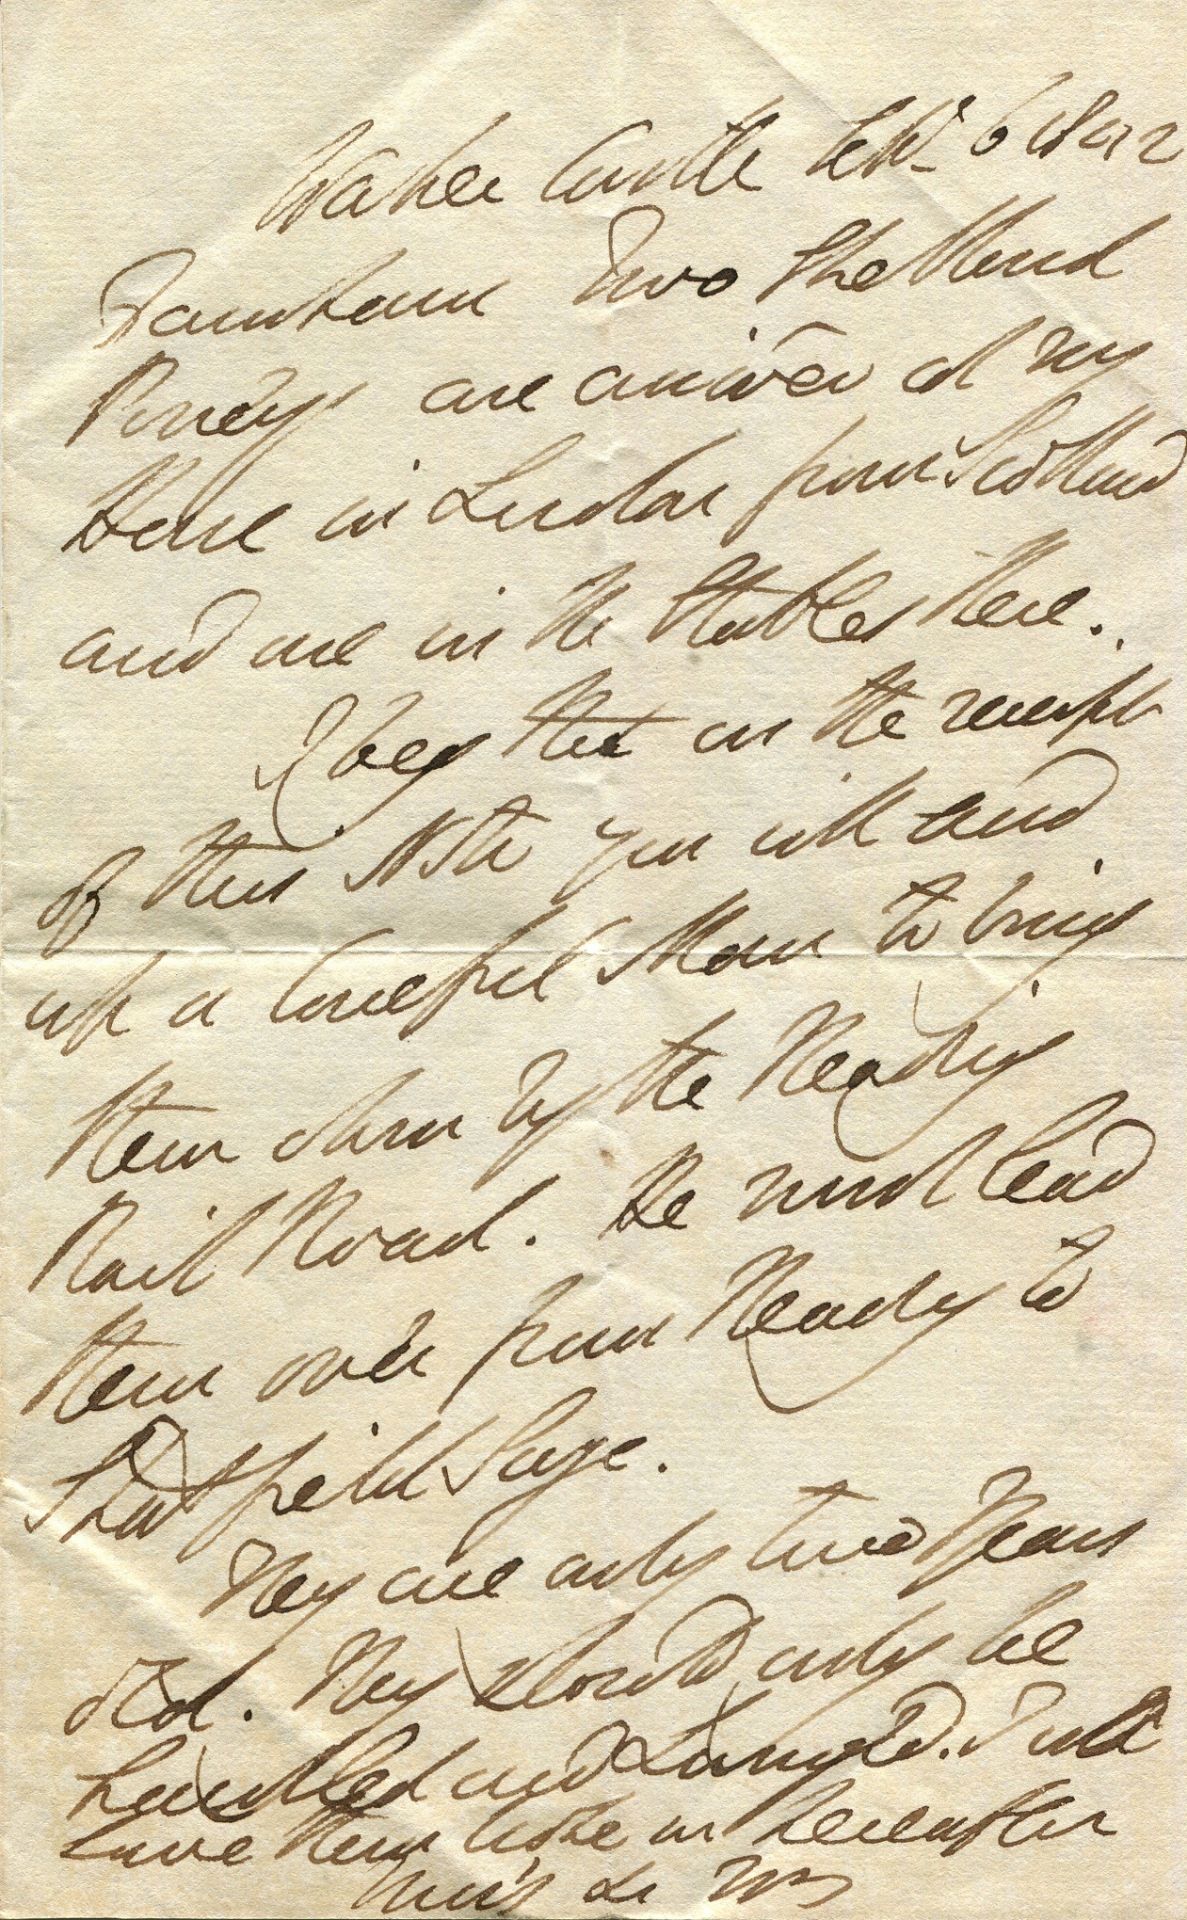 Walmer Castle Septr 6 1842
Two Shetland
Poneys are arrived at my
House in London from Scotland
and are in the Stables there.
I beg that on the receipt
of this Note you will send
up a Careful Man to bring
them down by the Reading
Rail Road. He must lead
them over from Reading to
Stratfield Saye.
They are only two Years
old. They should only be
handled and Lunged. I will
have them broke in hereafter